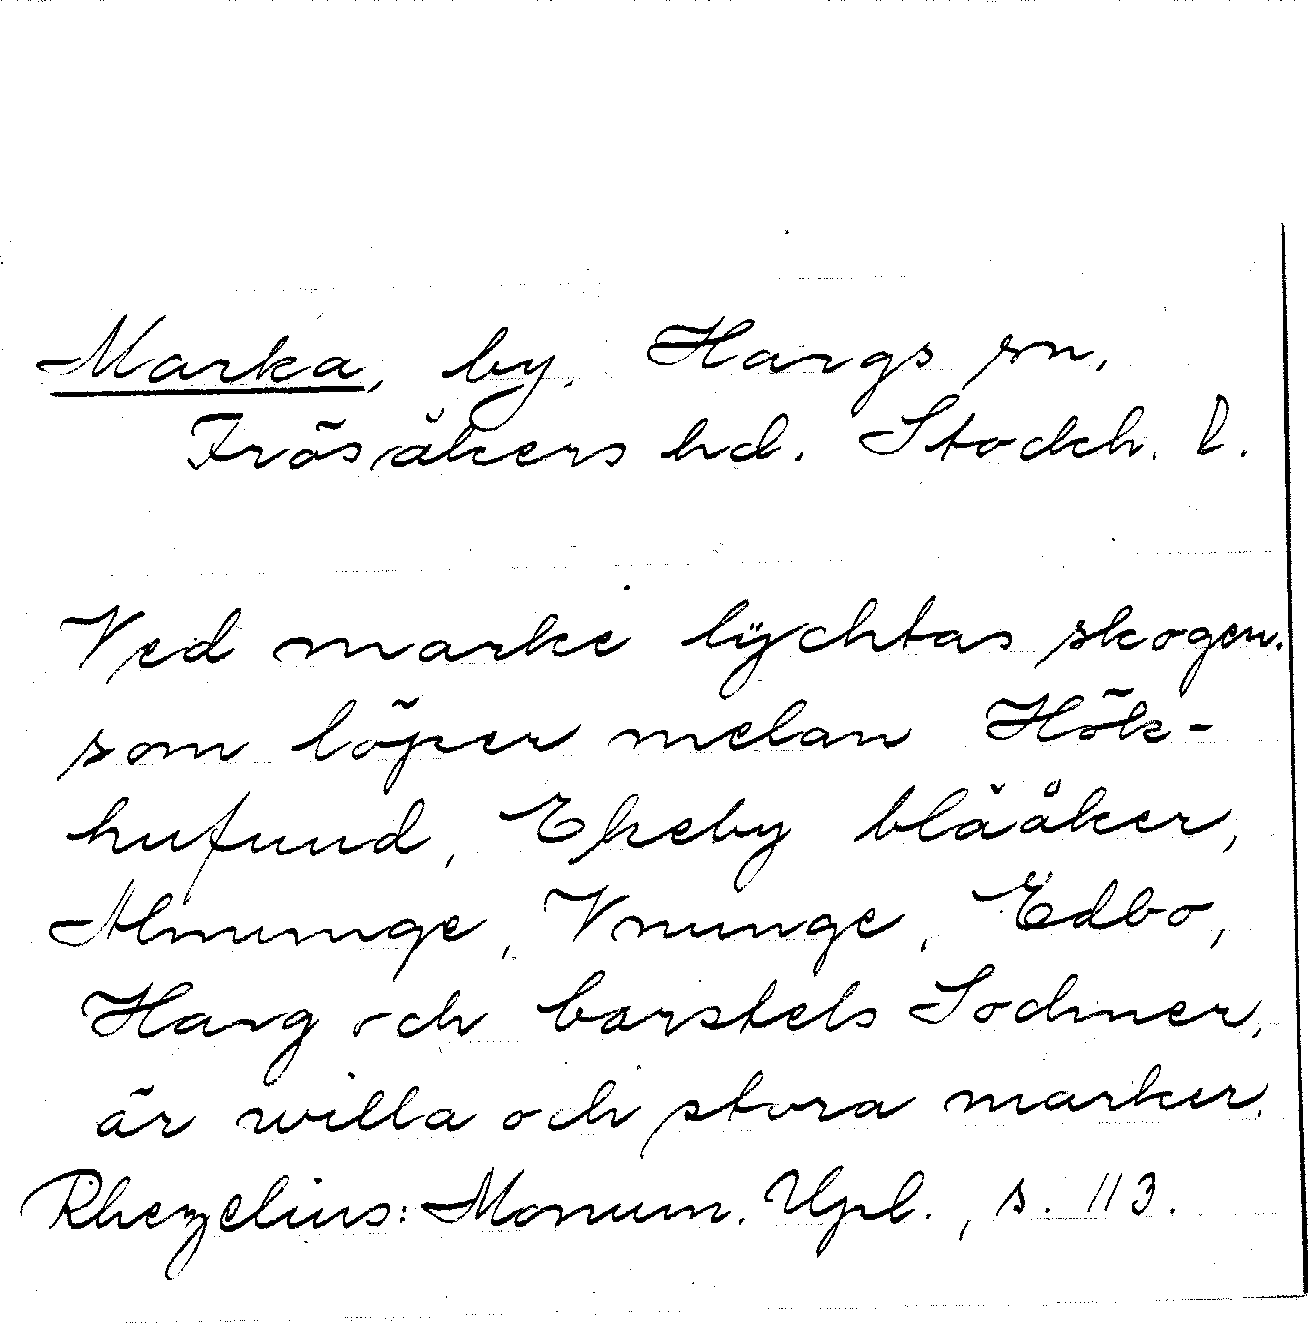 Marka, by, Hargs sn,
Frösåkers hd. Stockh. l.
Ved marke lÿchtas skogen.
som löper melan Hök-
hufuud, Ekeby blååker,
Almunge, Vnunge, Edbo,
Harg och barstels Sochner,
är willa och stora marker.
Rhezelius: Monum. Upl., s. 113.